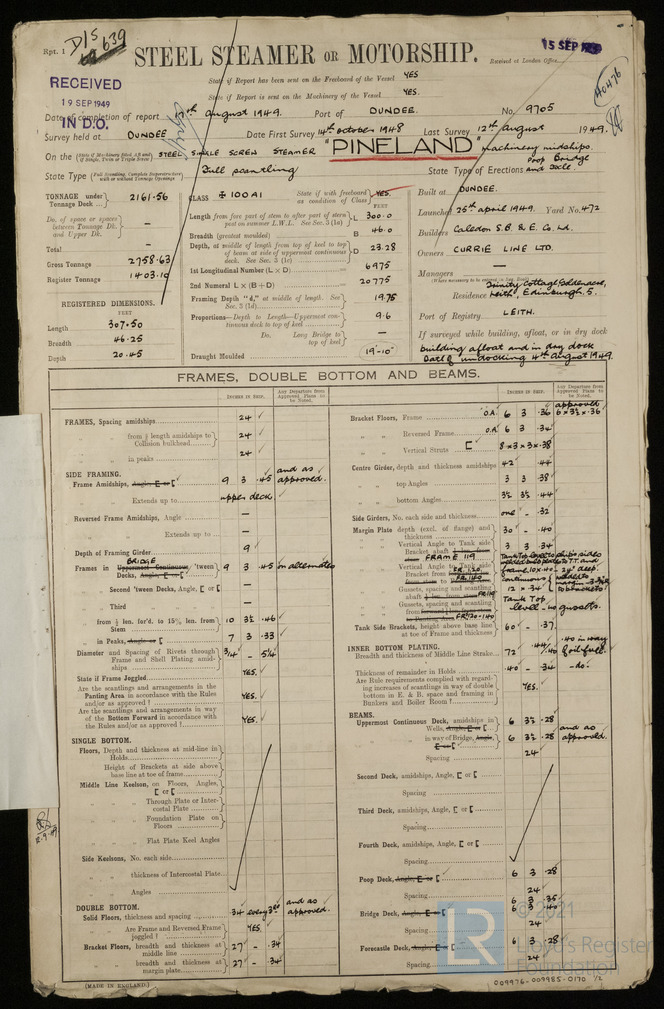 Rpt. 1
D/S 639
STEEL STEAMER OR MOTORSHIP.
15 SEP 1949
Received at London Office
RECEIVED
19 SEP 1949
IN D.O.
State if Report has been sent on the Freeboard of the Vessel YES
State if Report is sent on the Machinery of the Vessel YES.
40476
Date of completion of report August 1949. Port of DUNDEE. No. 9705
Survey held at DUNDEE Date First Survey 14th October 1948 Last Survey 12th August 1949.
On the STEEL SINGLE SCREW STEAMER "PINELAND" Machinery midships.
State Type Full scantling State Type of Erections Poop Bridge and Focle.
TONNAGE under Tonnage Deck ... 2161.56
Do. of space or spaces between Tonnage Dk. and Upper Dk.
Total —
Gross Tonnage 2758.63
Register Tonnage 1403.10
REGISTERED DIMENSIONS.
FEET
Length 307.50
Breadth 46.25
Depth 20.45
CLASS ✠ 100A1 State if with freeboard as condition of Class YES.
FEET
Length from fore part of stem to after part of stern post on summer L.W.L. See Sec. 3 (1a) L 300.0
Breadth (greatest moulded) B 46.0
Depth, at middle of length from top of keel to top of beam at side of uppermost continuous deck. See Sec. 3 (1c) D 23.28
1st Longitudinal Number (L × D) 6975
2nd Numeral L × (B + D) 20775
Framing Depth "d," at middle of length. See Sec. 3 (1d) 19.75
Proportions—Depth to Length—Uppermost continuous deck to top of keel 9.6
Do. Long Bridge to top of keel —
Draught Moulded 19'-10"
Built at DUNDEE.
Launched 25th April 1949. Yard No. 472
Builders Caledon S.B. & E. Co. Ld.
Owners CURRIE LINE LTD.
Managers —
Residence Trinity Cottage, Goldenacre, Edinburgh, 5.
Port of Registry LEITH.
If surveyed while building, afloat, or in dry dock
building afloat and in dry dock
Date of undocking 4th August 1949.
FRAMES, DOUBLE BOTTOM AND BEAMS.
INCHES IN SHIP.
Any Departure from Approved Plans to be Noted.
FRAMES, Spacing amidships 24
from ⅕ length amidships to Collision bulkhead 24
in peaks 24
SIDE FRAMING.
Frame Amidships, Angle, E or [ 9 3 .45 and as approved.
Extends up to upper deck
Reversed Frame Amidships, Angle —
Extends up to —
Depth of Framing Girder 9
Frames in Uppermost Continuous BRIDGE 'tween Decks, Angle, E or [ 9 3 .45 on alternates
Second 'tween Decks, Angle, [ or [ —
Third —
from ⅕ len. for'd. to 15% len. from Stem 10 3½ .46
in Peaks, Angle or [ 7 3 .33
Diameter and Spacing of Rivets through Frame and Shell Plating amidships ¾ - 5¼
State if Frame Joggled YES.
Are the scantlings and arrangements in the Panting Area in accordance with the Rules and/or as approved? YES.
Are the scantlings and arrangements in way of the Bottom Forward in accordance with the Rules and/or as approved? YES.
SINGLE BOTTOM.
Floors, Depth and thickness at mid-line in Holds
Height of Brackets at side above base line at toe of frame
Middle Line Keelson, on Floors, Angles, [ or [
Through Plate or Intercostal Plate
Foundation Plate on Floors
Flat Plate Keel Angles
Side Keelsons, No. each side
thickness of Intercostal Plate
Angles
DOUBLE BOTTOM.
Solid Floors, thickness and spacing .34 every 3rd and as approved.
Are Frame and Reversed Frame joggled? YES.
Bracket Floors, breadth and thickness at middle line 27 - .34
breadth and thickness at margin plate 27 - .34
Bracket Floors, Frame O.A. 6 3 .36 approved 6 × 3½ × .36
Reversed Frame O.A. 6 3 .34
Vertical Struts [ 8 × 3 × 3 × .38
Centre Girder, depth and thickness amidships 42 .44
top Angles 3 3 .38
bottom Angles 3½ 3½ .44
Side Girders, No. each side and thickness one - .32
Margin Plate depth (excl. of flange) and thickness 30 - .40
Vertical Angle to Tank side Bracket abaft FRAME 119 3 3 .34
Vertical Angle to Tank side Bracket from FR. 120 FR. 140
Gussets, spacing and scantling abaft FR 119
Gussets, spacing and scantling from FR 120-140
Tank Top level - no gussets.
Tank Side Brackets, height above base line at toe of Frame and thickness 60 - .37
INNER BOTTOM PLATING.
Breadth and thickness of Middle Line Strake 72 .44/.40 .40 in way
Thickness of remainder in Holds .40 - .34 -do-
Are Rule requirements complied with regarding increases of scantlings in way of double bottom in E. & B. space and framing in Bunkers and Boiler Room? YES.
BEAMS.
Uppermost Continuous Deck, amidships in Wells, Angle, E or [ 6 3½ .28 and as
in way of Bridge, Angle, E or [ 6 3½ .28 approved.
Spacing 24
Second Deck, amidships, Angle, [ or [
Spacing
Third Deck, amidships, Angle, [ or [
Spacing
Fourth Deck, amidships, Angle, [ or [
Spacing
Poop Deck, Angle, E or [ 6 3 .28
Spacing 24
Bridge Deck, Angle, E or [ 6 3 .35
6 3 .40
Spacing 24
Forecastle Deck, Angle, E or [ 6 3 .28
Spacing 24
(MADE IN ENGLAND.)
© 2021
LR
Lloyd's Register
Foundation
009976-009985-0170 1/2